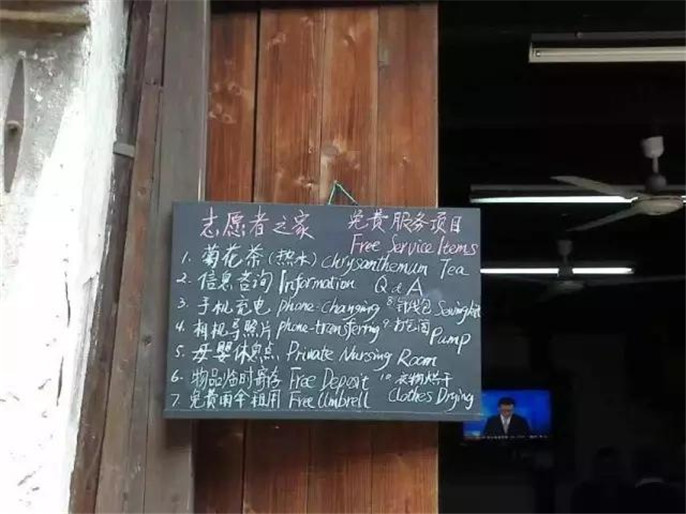 志愿者之家 免费服务项目
Free Service Items
1. 菊花茶(热水) chrysanthemum Tea
2. 信息咨询 Information Q & A
3. 手机充电 phone-changing 8. 针线包 Sewing kit
4. 相机导照片 phone-transfering 9. 打气筒 Pump
5. 母婴休息点 Private Nursing Room
6. 物品临时寄存 Free Deposit 10. 衣物烘干
7. 免费雨伞租用 Free Umbrell Clothes Drying